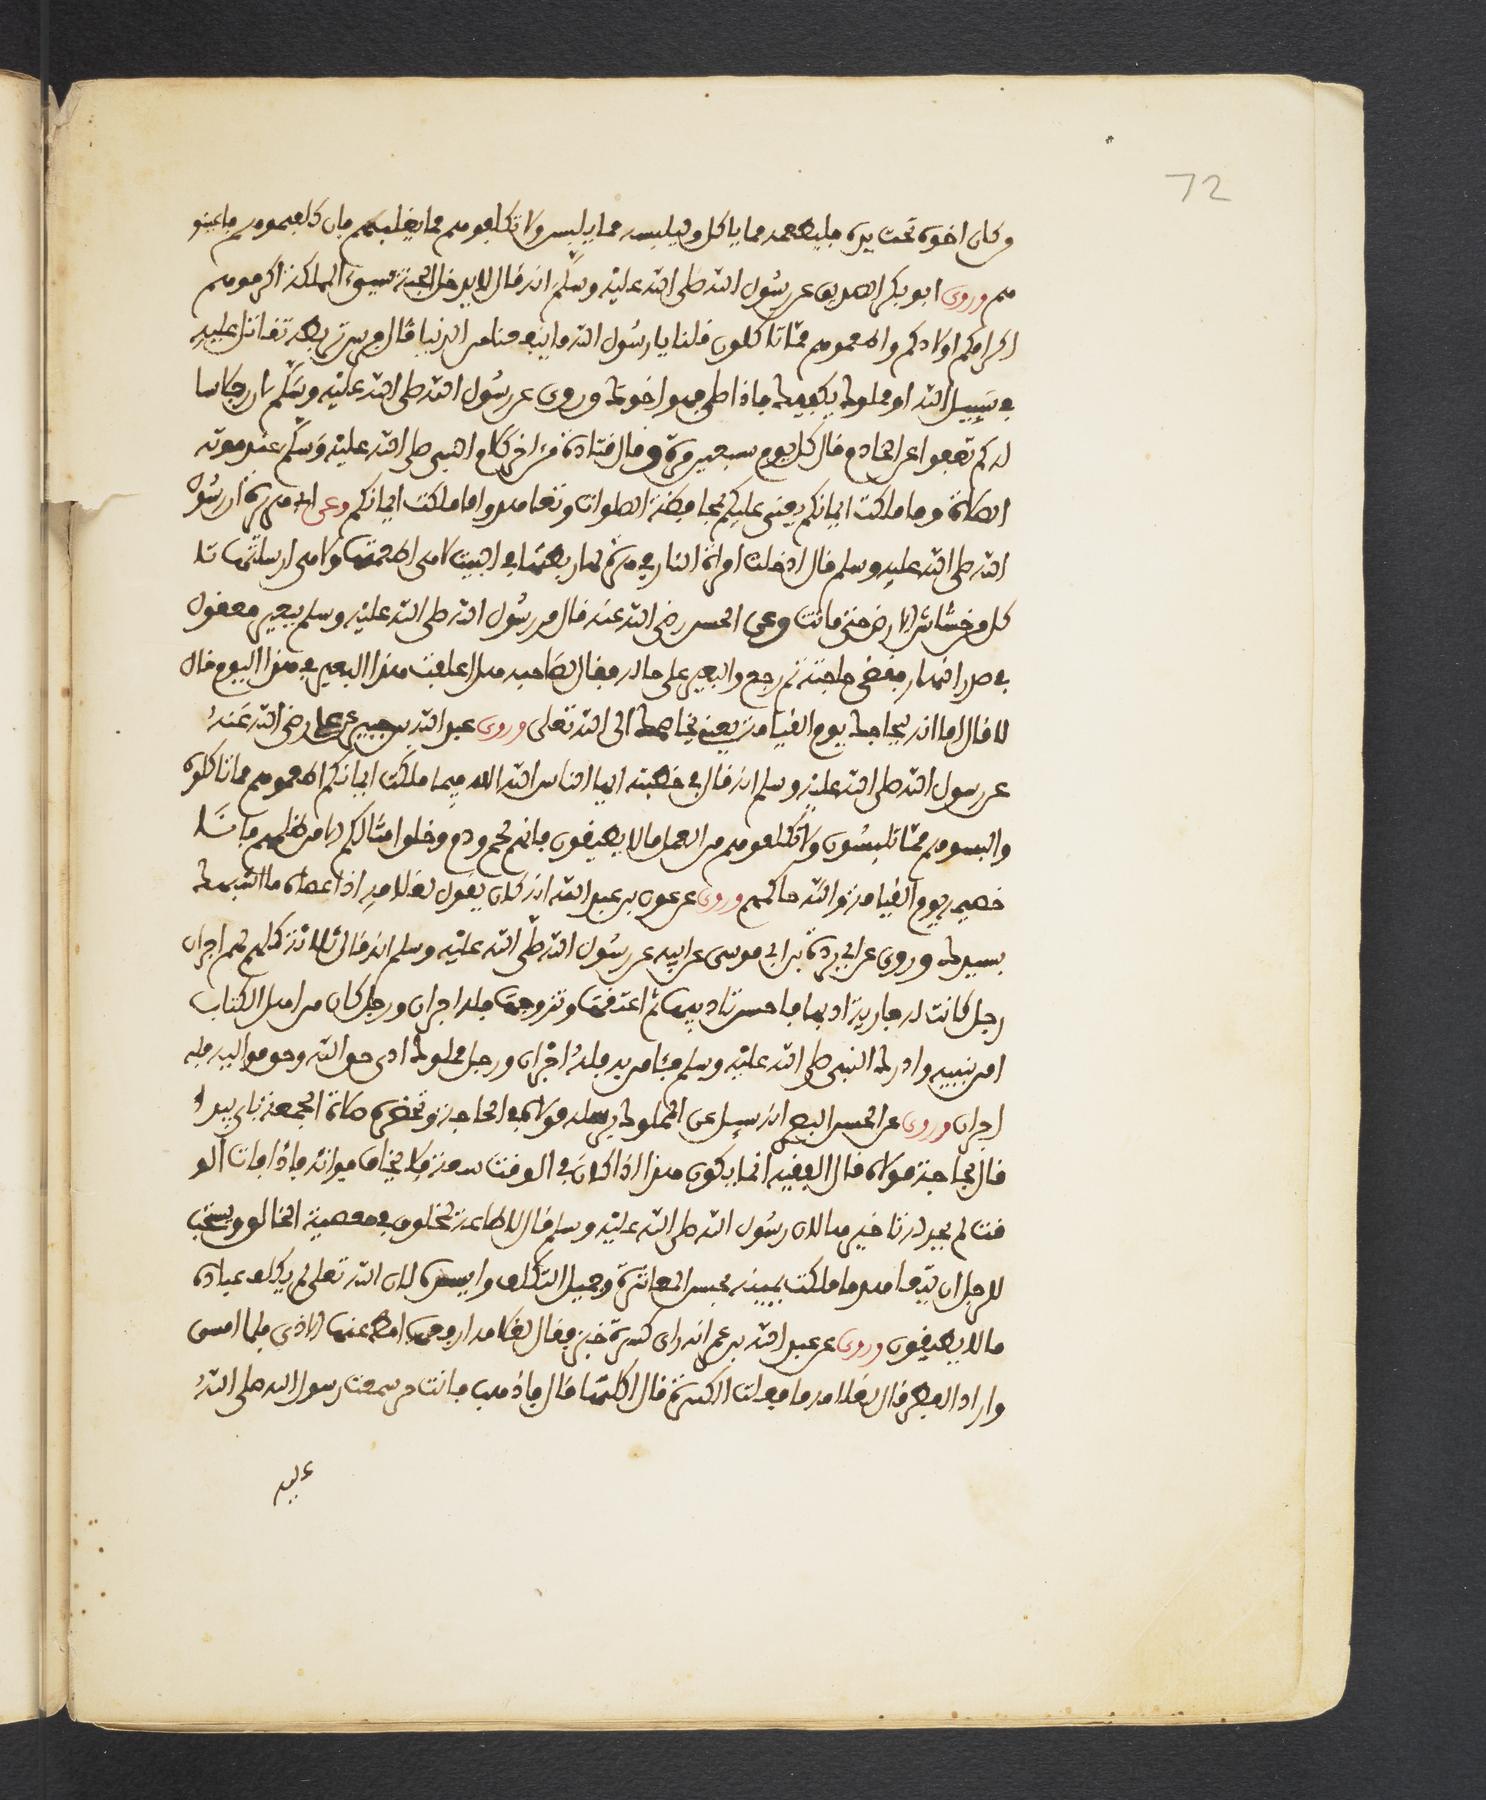 72
وكان اخوه تحت يده فليطعمه مما ياكل وليلبسه مما يلبس ولا تكلفوهم مما يغلبهم فان كلفتموهم فاعينو
هم وروى ابو بكر الصديق عن رسول الله صلى الله عليه وسلم انه قال لا يدخل الجنة سيئ الملكة اكرموهم
اكرامكم اولادكم واطعموهم مما تاكلون قلنا يا رسول الله ما ينفعنا من الدنيا قال فرس تربطه تقاتل عليه
في سبيل الله او مملوك يكفيك فاذا صلى فهو اخوك وروي عن رسول الله صلى الله عليه وسلم ان رجلا سا
له كم تعفوا عن الخادم قال كل يوم سبعين مرة وقال قتادة من اخر كلام النبي صلى الله عليه وسلم عند موته
الصلاة وما ملكت ايمانكم يعنى عليكم بمحافظة الصلوات وتعاهدوا ما ملكت ايمانكم وعن ابي هريرة ان رسول
الله صلى الله عليه وسلم قال ادخلت امراة النار في هرة لها ربطتها في البيت لا هي اطعمتها ولا هي ارسلتها تا
كل من خشاش الارض حتى ماتت وعن الحسن رضي الله عنه قال مر رسول الله صلى الله عليه وسلم ببعير معقول
في صدر النهار فقضى حاجته ثم رجع والبعير على حاله فقال لصاحبه هل اعلفت هذا البعير في هذا اليوم قال
لا قال اما انه يحاجك يوم القيامة يعني يخاصمك الى الله تعلى وروى عبد الله بن حبيب عن علي رضي الله عنه
عن رسول الله صلى الله عليه وسلم انه قال في خطبته ايها الناس الله الله فيما ملكت ايمانكم اطعموهم مما تاكلون
والبسوهم مما تلبسون ولا تكلفوهم من العمل ما لا يطيقون فانهم لحم ودم وخلق امثالكم الا من ظلمهم فانا
خصيمه يوم القيامة والله حاكمهم وروى عن عون بن عبد الله انه كان يقول لغلامه اذا عصاه ما اشبهك
بسيدك وروي عن ابي بردة بن ابي موسى عن ابيه عن رسول الله صلى الله عليه وسلم انه قال ثلاثة كلهم لهم اجران
رجل كانت له جارية ادبها فاحسن تاديبها ثم اعتقها وتزوجها فله اجران ورجل كان من اهل الكتاب
امن بنبيه وادرك النبي صلى الله عليه وسلم فئامن به فله اجران ورجل مملوك ادى حق الله وحق مواليه فله
اجران وروى عن الحسن البصري انه سيل عن المملوك يرسله مولاه في الحاجة وتحضره صلاة الجمعة باي يبدا
قال بحاجة مولاه قال الفقيه انما يكون هذا اذا كان في الوقت سعة ولا يخاف فواته فاذا فات الو
قت لم يجز له تاخيرها لان رسول الله صلى الله عليه وسلم قال لا طاعة لمخلوق في معصية الخالق ويستحب
للرجل ان يتعاهد ما ملكت يمينه بحسن المعاشرة وجميل التكلف وايسره لان الله تعلى لم يكلف عباده
ما لا يطيقون وروى عن عبد الله بن عمر انه راى كسرة خبز فقال لغلامه ارفعها امط عنها الاذى فلما امسى
واراد الفطر قال لغلامه ما فعلت الكسرة قال اكلتها قال فاذهب فانت حر سمعت رسول الله صلى الله
عليه